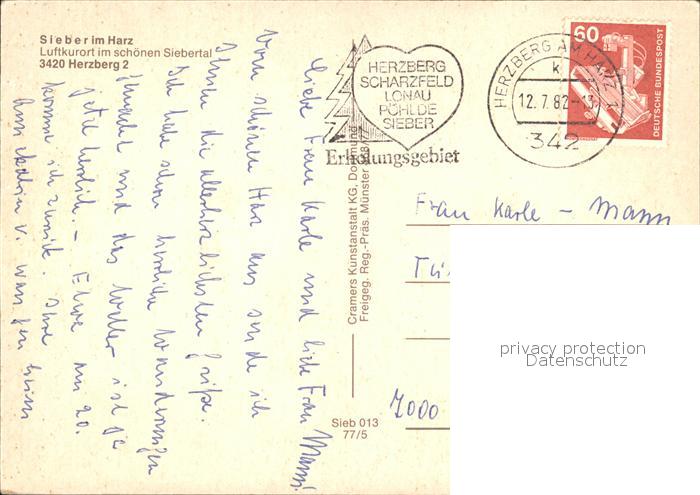 Sieber im Harz
Luftkurort im schönen Siebertal
3420 Herzberg 2
HERZBERG
SCHARZFELD
LONAU
PÖHLDE
SIEBER
Erholungsgebiet
HERZBERG AM HARZ 1
k
12.7.82-13
342
60
DEUTSCHE BUNDESPOST
Liebe Frau Karle und liebe Frau Mann!
Vom schönen Harz aus sende ich
Ihnen die allerherzlichsten Grüße.
Ich habe schon herrliche Wanderungen
gemacht und das Wetter ist ja
jetzt herrlich. – Etwa am 20.
komme ich zurück. Ihre
v.
Cramers Kunstanstalt KG, Dortmund
Freigeg. Reg.-Präs. Münster
Sieb 013
77/5
Frau Karle – Mann
7000
privacy protection
Datenschutz